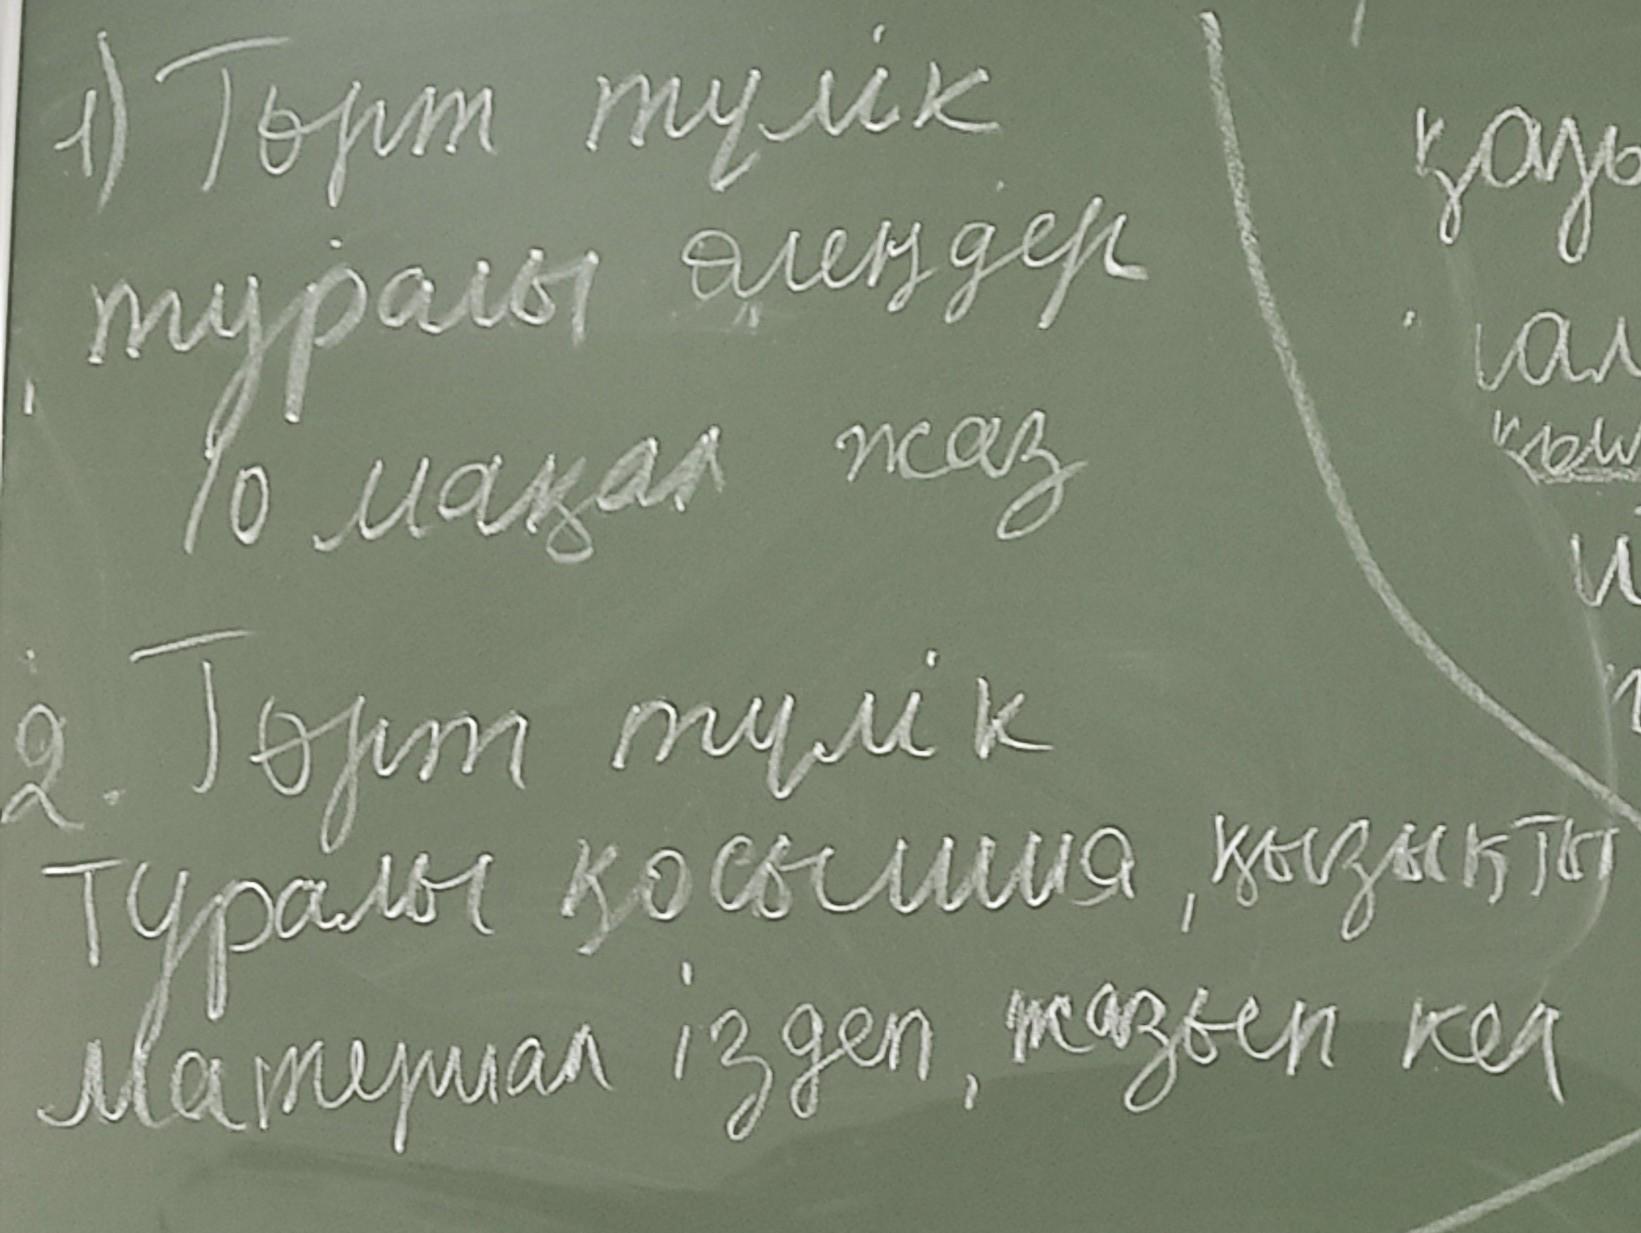 1) Төрт түлік
туралы өлеңдер
10 мақал жаз
2. Төрт түлік
туралы қосымша, қызықты
материал іздеп, жазып кел